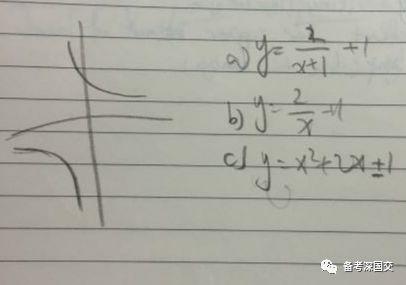 a) y = 2/(x+1) + 1
b) y = 2/x + 1
c) y = x² + 2x ± 1
备考深国交